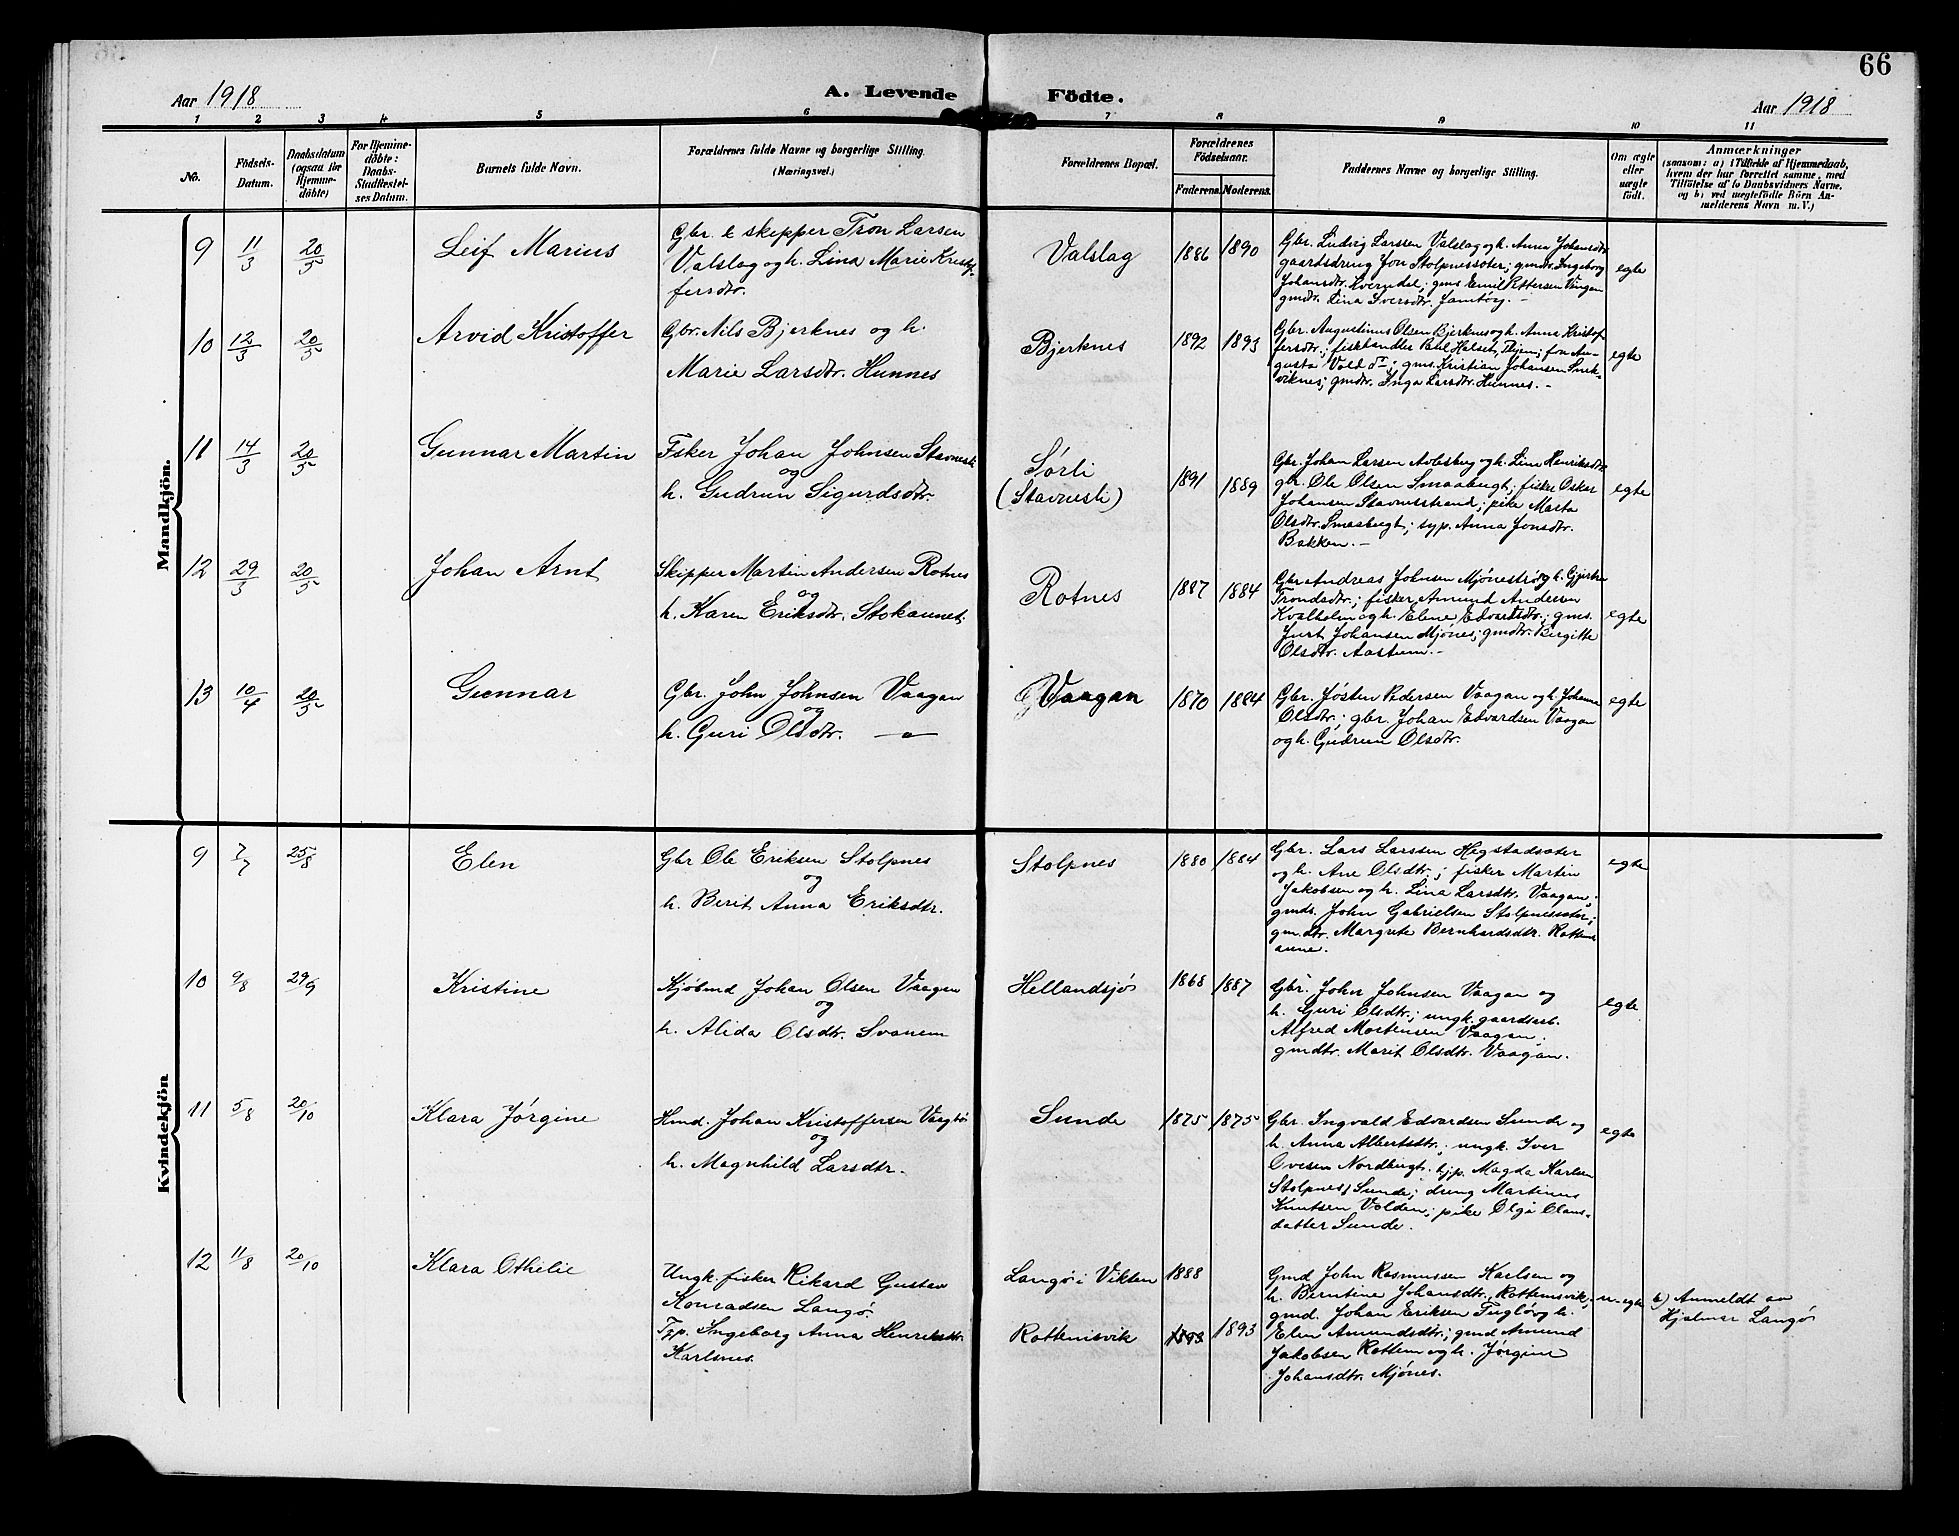 66
Aar 1918
A. Levende Födte.
Aar 1918
1 2 3 4 5 6 7 8 9 10 11
No.
Födsels-
Datum.
Daabsdatum
(ogsaa for
Hjemme-
døbte)
For Hjemme-
døbte:
Daabs-
Stadfæstel-
ses Datum.
Barnets fulde Navn.
Forældrenes fulde Navne og borgerlige Stilling.
(Næringsvei.)
Forældrenes Bopæl.
Forældrenes
Födselsaar.
Faderens. Moderens.
Faddernes Navne og borgerlige Stilling.
Om ægte
eller
uægte
födt.
Anmærkninger
(saasom: a) i Tilfælde af Hjemmedaab,
hvem der har forrettet samme, med
Tilföielse af to Daabsvidners Navne,
og b) ved uægtefödte Börn An-
melderens Navn m. V.)
Mandkjön.
9 11/3 20/5
Leif Marius
Gbr. & skipper Tron Larsen
Valslag og h. Lina Marie Kristof-
fersdtr.
Valslag
1886 1890
Gbr. Ludvig Larssen Valslag og h. Anna Johansdtr
gaardsdreng Jon Stolpnessæter; gmdtr. Ingeborg
Johansdtr. Kverndal; gms Emil Pettersen Vaagan
gmdtr. Lina Iversdtr. Jamtöy. –
egte
10 12/3 20/5
Arvid Kristoffer
Gbr. Nils Bjerknes og h.
Marie Larsdtr. Hunnes
Bjerknes
1892 1893
Gbr. Augustinus Olsen Bjerknes og h. Anna Kristof-
fersdtr.; fiskhandler Paul Halset, Thjem; frk Au-
gusta Vold; gms. Kristian Johansen Snek-
viknes; gmdtr. Inga Larsdtr. Hunnes. –
egte
11 14/3 20/5
Gunnar Martin
Fsker Johan Johnsen Stavnesli
og
h. Gudrun Sigurdsdtr.
Sørli
(Stavnesli)
1891 1889
Gbr. Johan Larsen Aolesberg og h. Line Henriksdtr
gbr. Ole Olsen Smaabugt; fisker Oskar
Johansen Stavnesstrand; pike Marta
Olsdtr. Smaabugt; syp. Anna Jonsdtr.
Bakken. –
egte
12 29/3 20/5
Johan Arnt
Skipper Martin Andersen Rotnes
og
h. Karen Eriksdtr. Stokaunet.
Rotnes
1887 1884
Gbr Andreas Johnsen Mjønestrø og h. Gjertru
Trondsdtr.; fisker Amund Andersen
Kvalholm og h. Elene Edvartsdtr.; gms.
Kurt Johansen Mjønes; gmdtr. Birgitte
Olsdtr. Aastum. –
egte
13 10/4 20/5
Gunnar
Gbr. John Johnsen Vaagan
og
h. Guri Olsdtr. — „ —
Vaagan
1870 1884
Gbr. Jøsten Pedersen Vaagan og h. Johanna
Olsdtr.; gbr. Johan Edvardsen Vaagan
og h. Gudrun Olsdtr.
egte
Kvindekjön
9 7/7 25/8
Elen
Gbr Ole Eriksen Stolpnes
og
h. Berit Anna Eriksdtr.
Stolpnes
1880 1884
Gbr. Lars Larssen Hegstadsæter
og h. Ane Olsdtr.; fisker Martin
Jakobsen og h. Lina Larsdtr. Vaagan;
gmds. John Gabrielsen Stolpnessæter;
gm.dtr. Margrete Bernhardsdtr. Rottem
aune.
egte
10 9/8 29/9
Kristine
Kjøbmd Johan Olsen Vaagan
og
h. Alida Olsdtr. Svanem
Hellandsjø
1868 1887
Gbr. John Johnsen Vaagan og
h. Guri Olsdtr.; ungk. gaardsarb.
Alfred Mortensen Vaagan;
gmdtr. Marit Olsdtr. Vaagan.
egte
11 5/8 20/10
Klara Jørgine
Hmd. Johan Kristoffersen Vaagø
og
h. Magnhild Larsdtr.
Sunde
1875 1875
Gbr. Ingvald Edvardsen Sunde og
h. Anna Albertsdtr.; ungk. Iver
Ovesen Nordbugt. tjp. Magda Karlsen
Stolpnes/Sunde; dreng Martinus
Knutsen Volden; pike Olga Olaus-
datter Sunde.
egte
12 11/8 20/10
Klara Othelie
Ungk. fisker Rikard Gustav
Konradsen Langø.
Tjp. Ingeborg Anna Henriksdtr.
Karlsnes.
Langø i Vikten
Rottemsvik
1888
1893 1893
Gmd John Rasmussen Karlsen og
h. Berntine Johansdtr. Rottemsvik;
gmd. Johan Eriksen Fuglø og h.
Elen Amundsdtr; gmd Amund
Jakobsen Rottem og h. Jørgine
Johansdtr. Mjønes.
u-egte
b) Anmeldt av
Hjalmar Langø